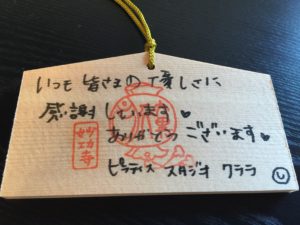 いつも 皆さまの優しさに
感謝しています♥
ありがとうございます♥
ピラティス スタジオ クララ
妙功寺